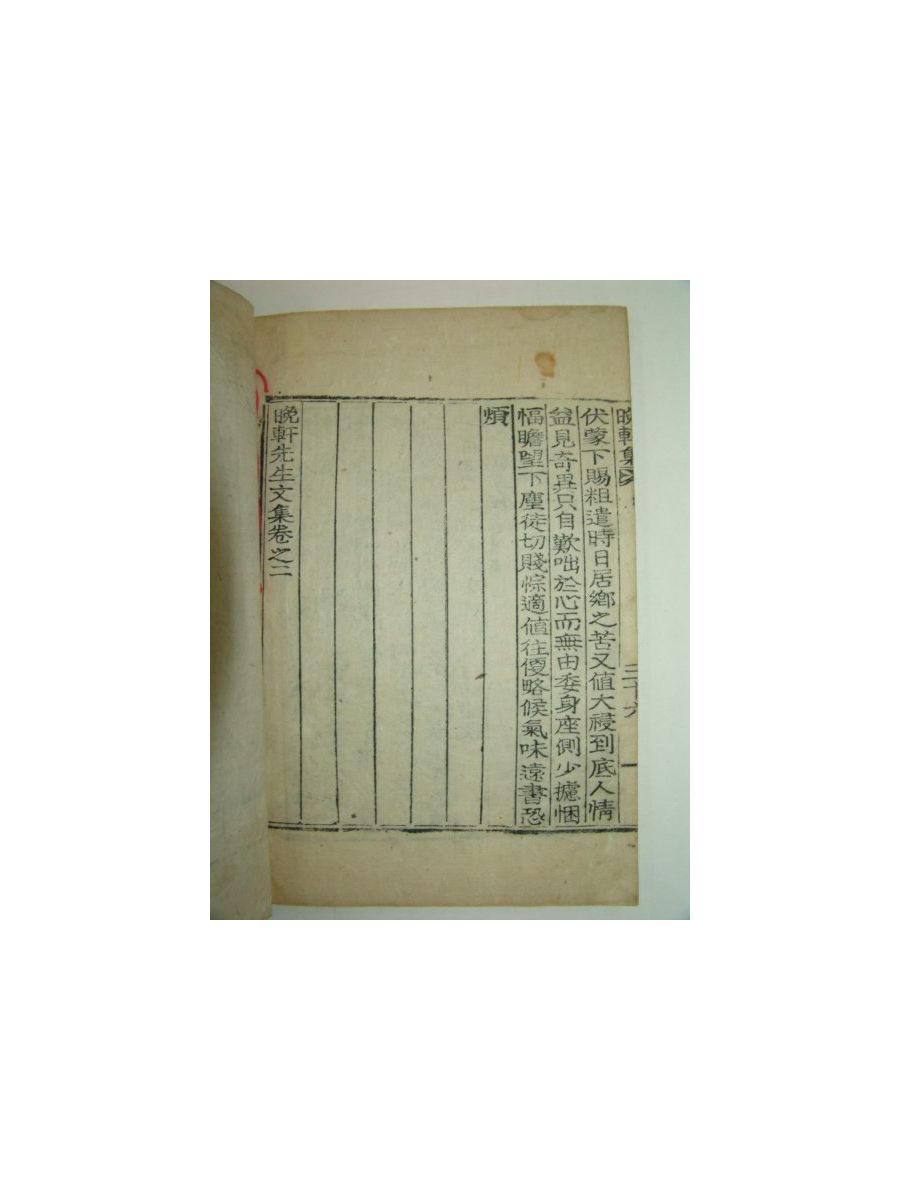 晚軒集
三十六
伏蒙下賜粗遣時日居鄉之苦又値大祲到底人情
益見奇異只自歎咄於心而無由委身座側少攄悃
愊瞻望下塵徒切賤悰適値往便略候氣味遠書恐
煩
晚軒先生文集卷之二